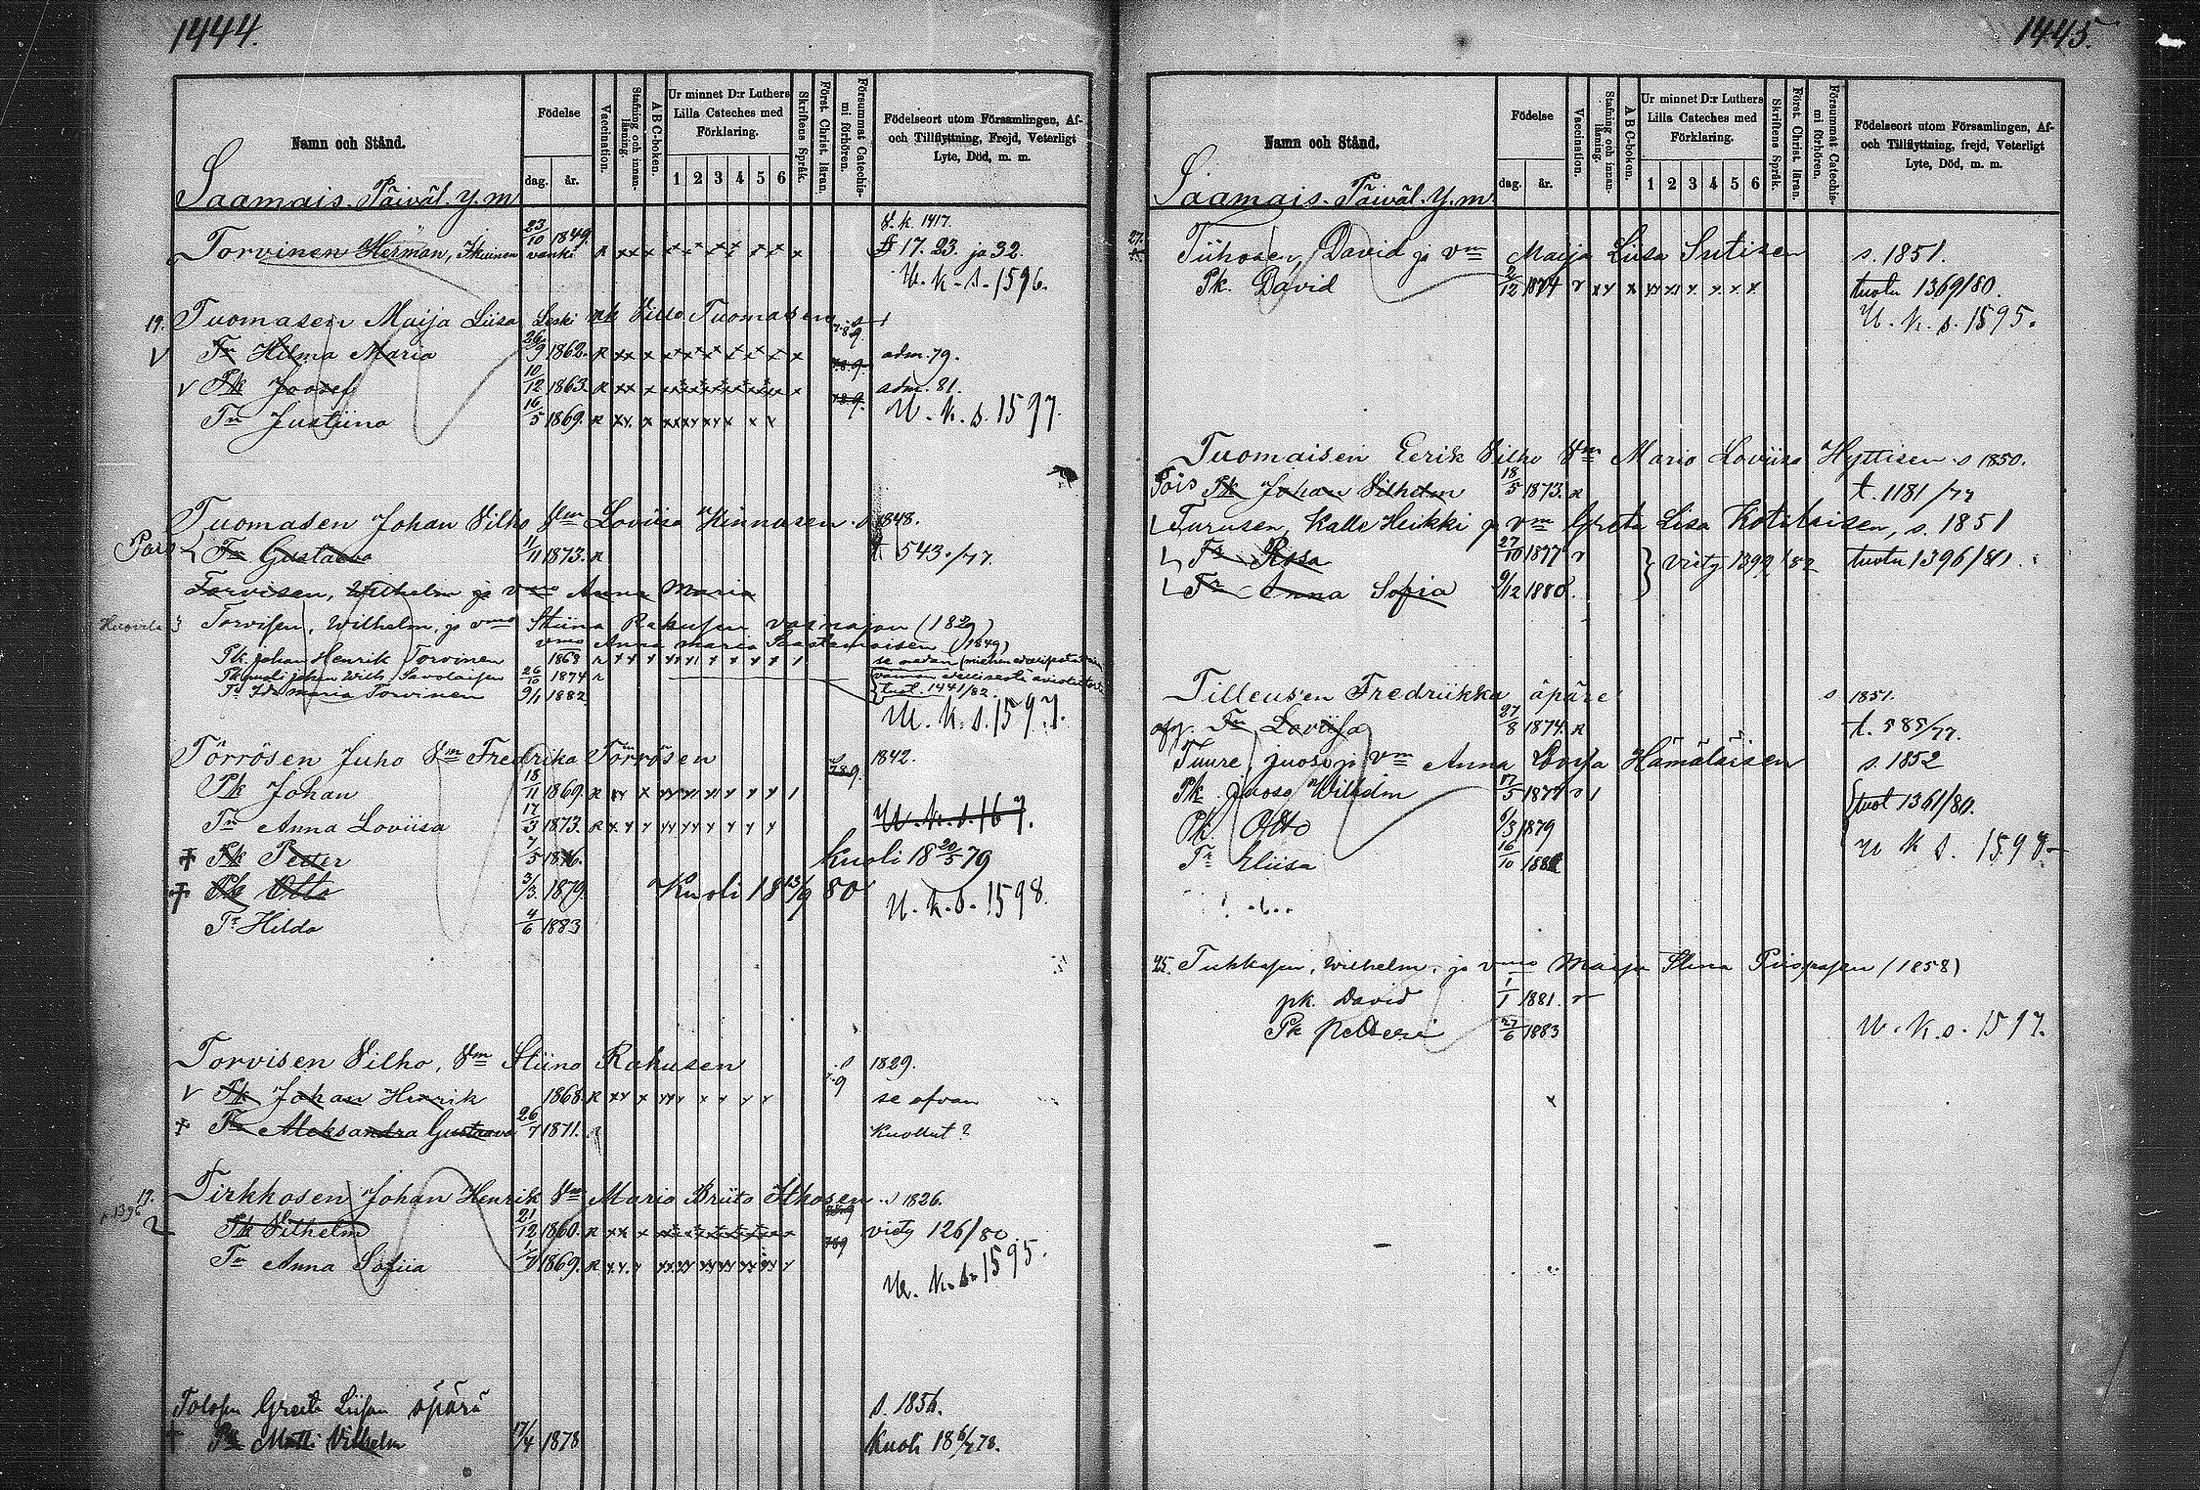 1444.
Namn och Stånd.
Födelse
dag. år.
Vaccination.
Stafning och innanläsning.
A B C-boken.
Ur minnet D:r Luthers Lilla Cateches med Förklaring.
1 2 3 4 5 6
Skriftens Språk.
Först. Christ. läran.
Försummat Catechismi förhören.
Födelseort utom Församlingen, Af- och Tillflyttning, Frejd, Veterligt Lyte, Död, m. m.
Saamais. Päiväl. y. m
S. k. 1417.
Torvinen Herman, vanki 23/10 1849 § 17. 23. ja 32.
U. k. s. 1596.
19. Tuomasen Maija Liisa Leski mk Vilho Tuomasen
Tr Hilma Maria 26/9 1862. adm. 79.
Pk Joosef 10/12 1863. adm. 81.
Tr Justiina 16/5 1869. U. k. s. 1597.
Tuomasen Johan Vilho Vm Loviisa Kinnasen s 1848.
Pois Tr Gustaava 11/11 1873. t. 543./77.
Torvisen, Wilhelm ja vmo Anna Maria
Torvisen, Wilhelm, ja vmo Stiina Rakusen vainajan (1829)
vmo Anna Maria (1849)
Pk. Johan Henrik Torvinen 1868 se nedan
Savolaisen 26/10 1874
Tr Ida Maria Torvinen 9/1 1882 tuot. 1441/82.
U. k. s. 1597.
Törrösen Juho Vm Fredrika Törrösen 1842.
Pk Johan 18/11 1869.
Tr Anna Loviisa 17/3 1873. U. k. s. 167.
+ Pk Petter 7/5 1876. Kuoli 18 20/5 79
+ Pk Otto 3/3 1879. Kuoli 18 13/9 80 U. k. s. 1598.
Tr Hilda 4/6 1883
Torvisen Vilho, Vm Stiina Rakusen s 1829.
V Pk Johan Henrik 1868. se ofvan
+ Tr Aleksandra Gustaava 26/7 1871. Kuollut?
19. Tirkkosen Johan Henrik Vm Maria Briita Itkosen s 1826.
Pk Vilhelm 21/12 1860. viety 126/80
Tr Anna Sofiia 1/7 1869. U. k. s. 1595.
Tolosen Greeta Liisan äpärä s. 1856.
+ Pk Matti Vilhelm 17/4 1878 Kuoli 18 6/7 78.
1445.
Namn och Stånd.
Födelse
dag. år.
Vaccination.
Stafning och innanläsning.
A B C-boken.
Ur minnet D:r Luthers Lilla Cateches med Förklaring.
1 2 3 4 5 6
Skriftens Språk.
Först. Christ. läran.
Försummat Catechismi förhören.
Födelseort utom Församlingen, Af- och Tillflyttning, frejd, Veterligt Lyte, Död, m. m.
Saamais. Päiväl. y. m
27. Tiihosen, David ja vm Maija Liisa Sutisen s. 1851.
Pk. David 2/12 1874 tuotu 1369/80.
U. k. s. 1595.
Tuomaisen Eerik Vilho Vm Maria Loviisa Hyttisen s 1850.
Pois Pk Johan Vilhelm 18/5 1873. t. 1181/77
Turusen, Kalle Heikki ja vm Greta Lisa Kotilaisen, s. 1851
Tr Rosa 27/10 1877 viety 1392/82 tuotu 1396/80.
Tr Anna Sofia 9/12 1880.
Tilleusen Fredriikka äpäre s 1851.
Tr Loviisa 27/8 1874. t. 585/77.
Tuure, Juoso ja vm Anna Lovisa Hämäläisen s. 1852
Pk. Juoso Wilhelm 17/5 1877 tuot 1361/80.
Pk. Otto 9/3 1879
Tr Eliisa 16/10 1882 U. k. s. 1598.
45. Tukkasen, Wilhelm, ja vmo Maija Stina (1858)
pk. David 1/1 1881.
Pk Petteri 27/6 1883 U. k. s. 1597.